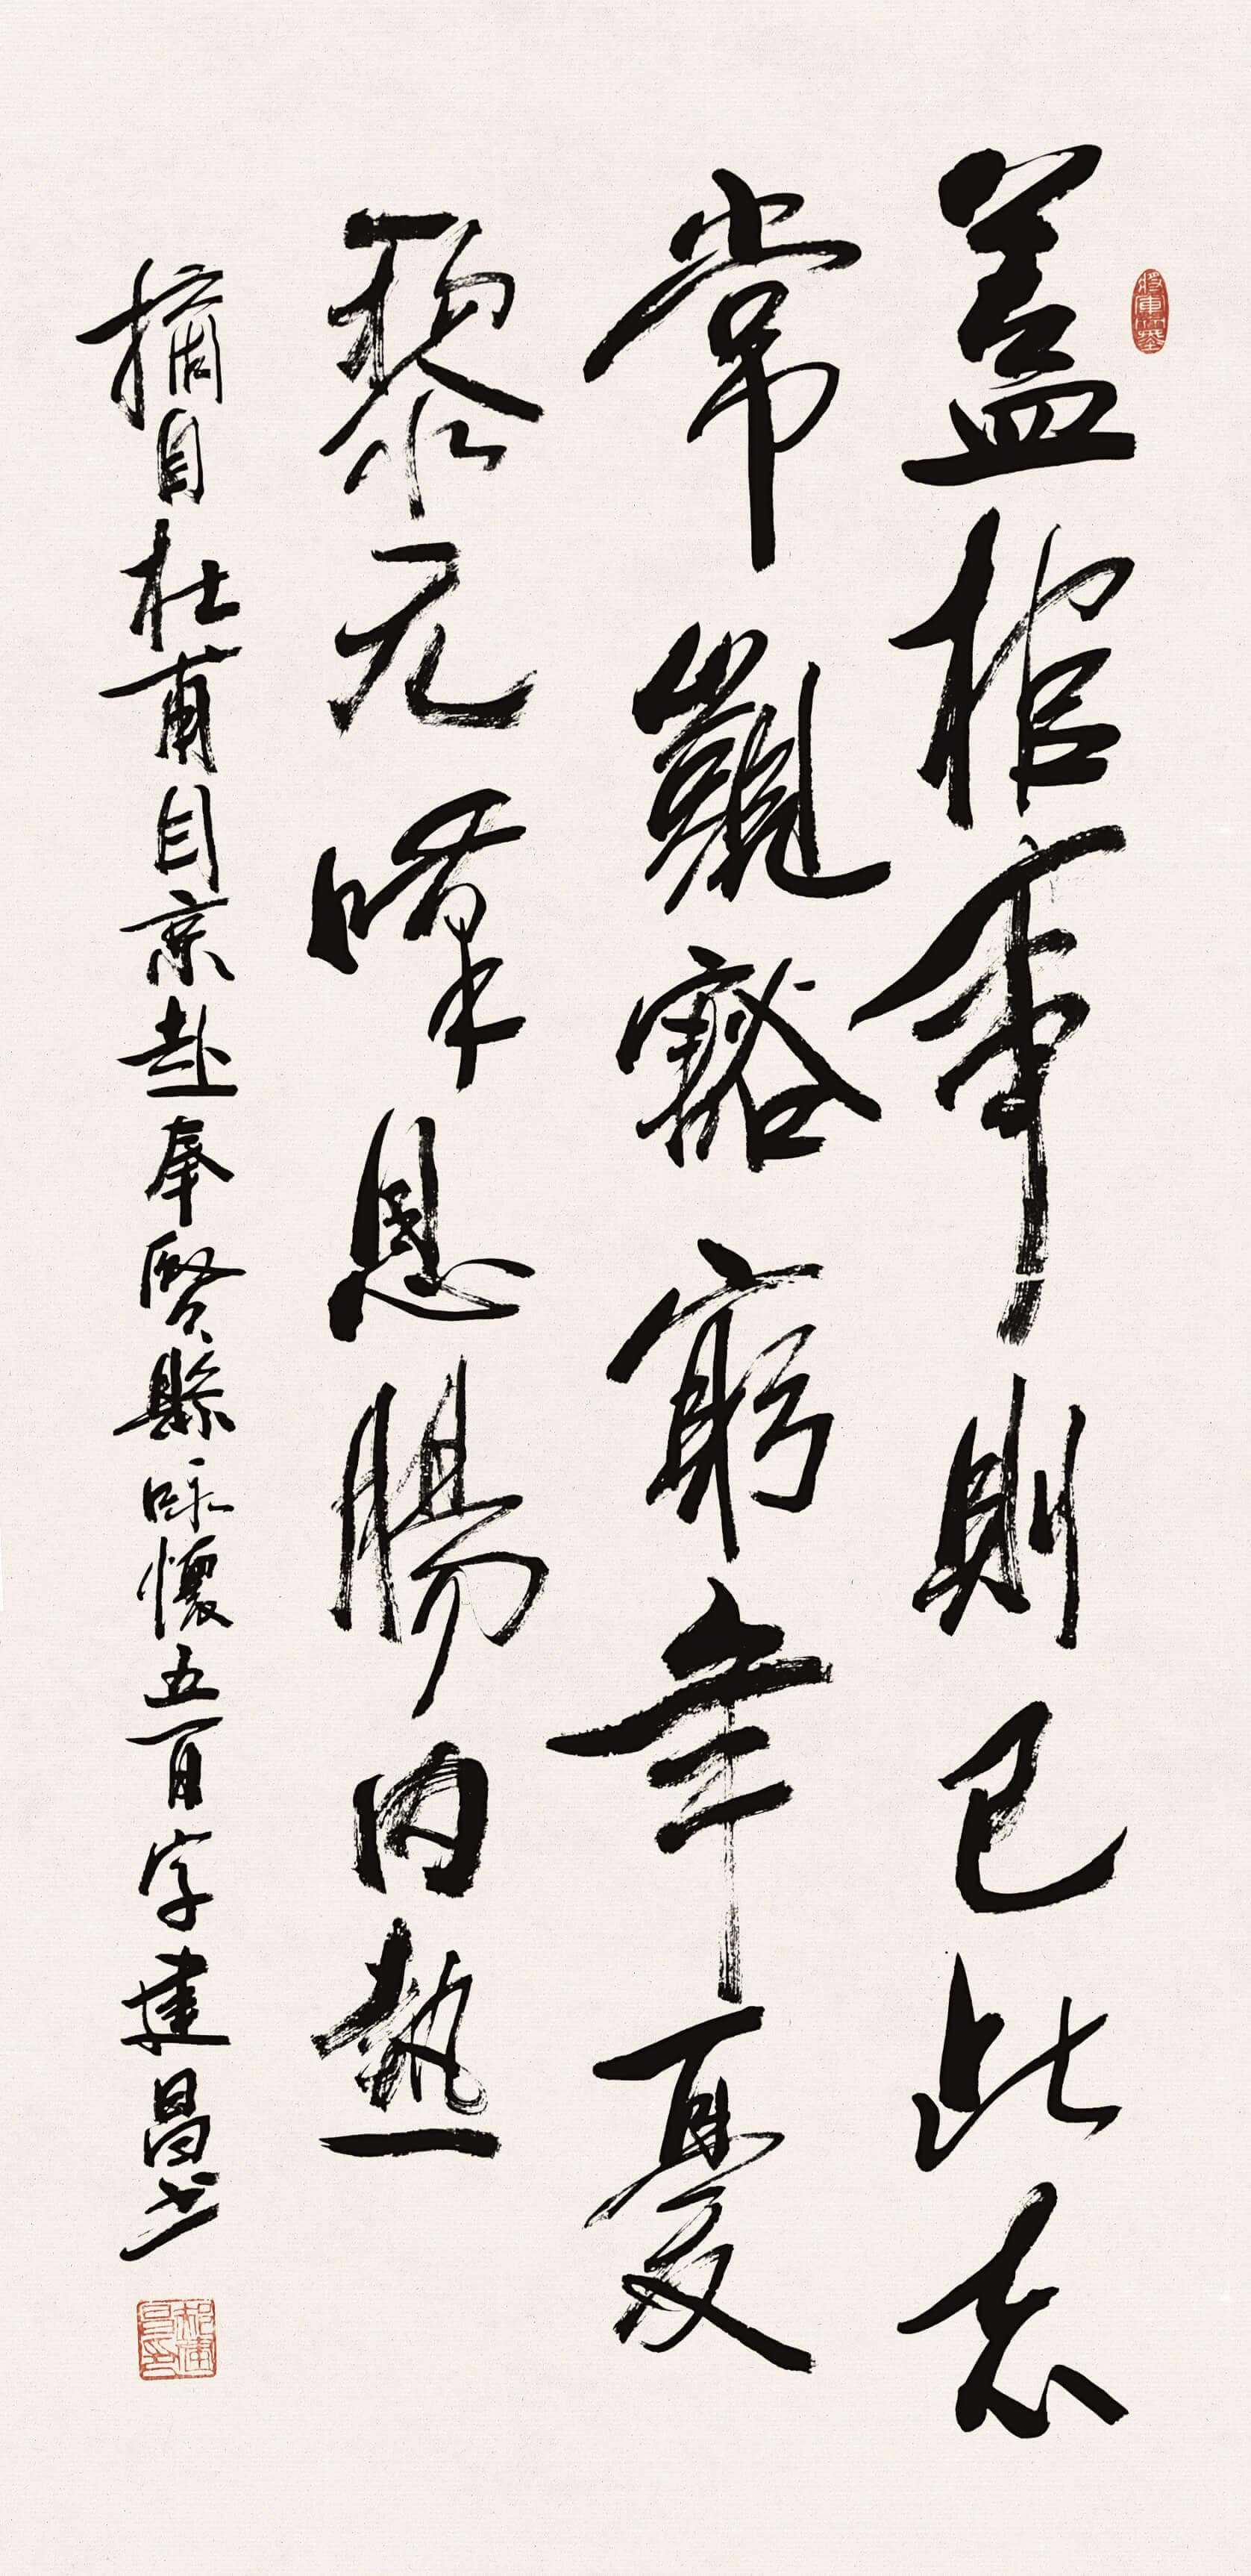 蓋棺事則已此志
常覬豁窮年憂
黎元嘆息腸内熱
摘自杜甫自京赴奉賢縣咏懷五百字建昌书